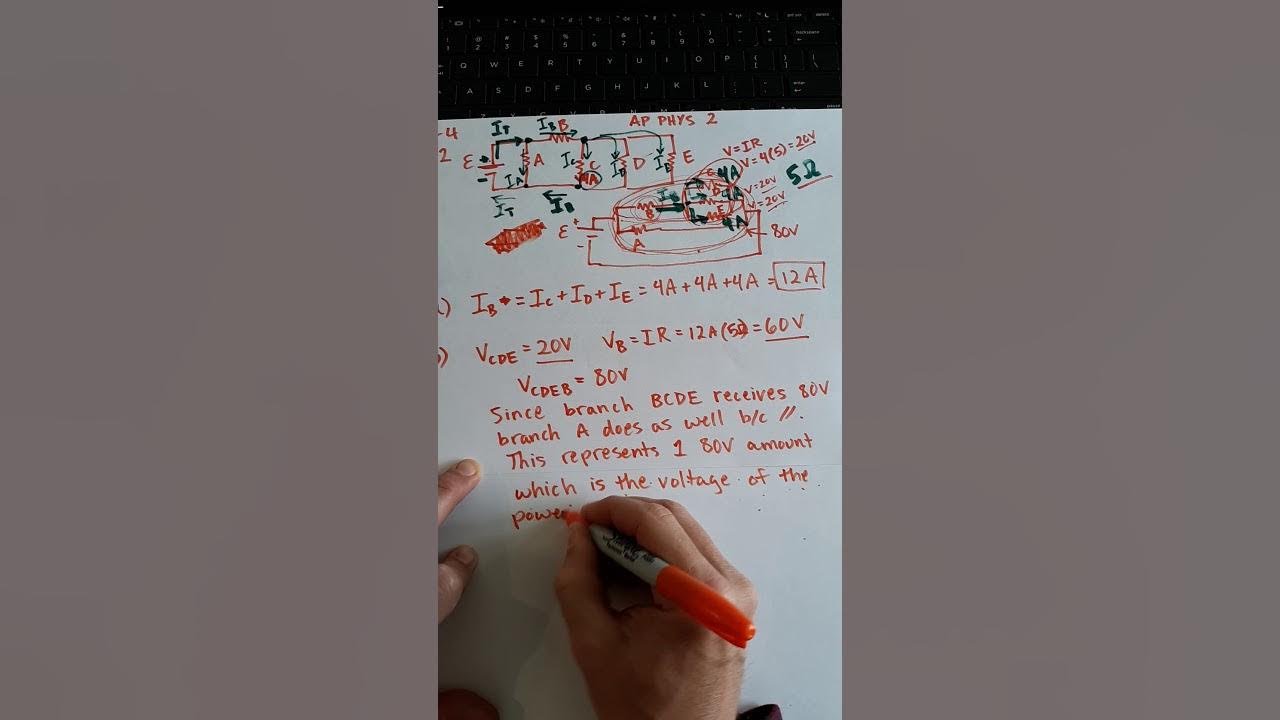 AP PHYS 2
-4
2
I_T
I_B B
ε
+
-
A
I_A
I_C
C
4A
I_D
D
I_E
E
I_T
I_B
V=IR
V=4(5)=20V
5Ω
C
4A
D
4A
V=20V
E
4A
V=20V
B
I_B
ε
+
-
A
80V
) I_B = I_C + I_D + I_E = 4A + 4A + 4A = 12A
) V_CDE = 20V V_B = IR = 12A(5Ω) = 60V
V_CDEB = 80V
Since branch BCDE receives 80V
branch A does as well b/c //.
This represents 1 80V amount
which is the voltage of the
power
Sharpie
Q W E R T Y U I O P
A S D F G H J K L
backspace
enter